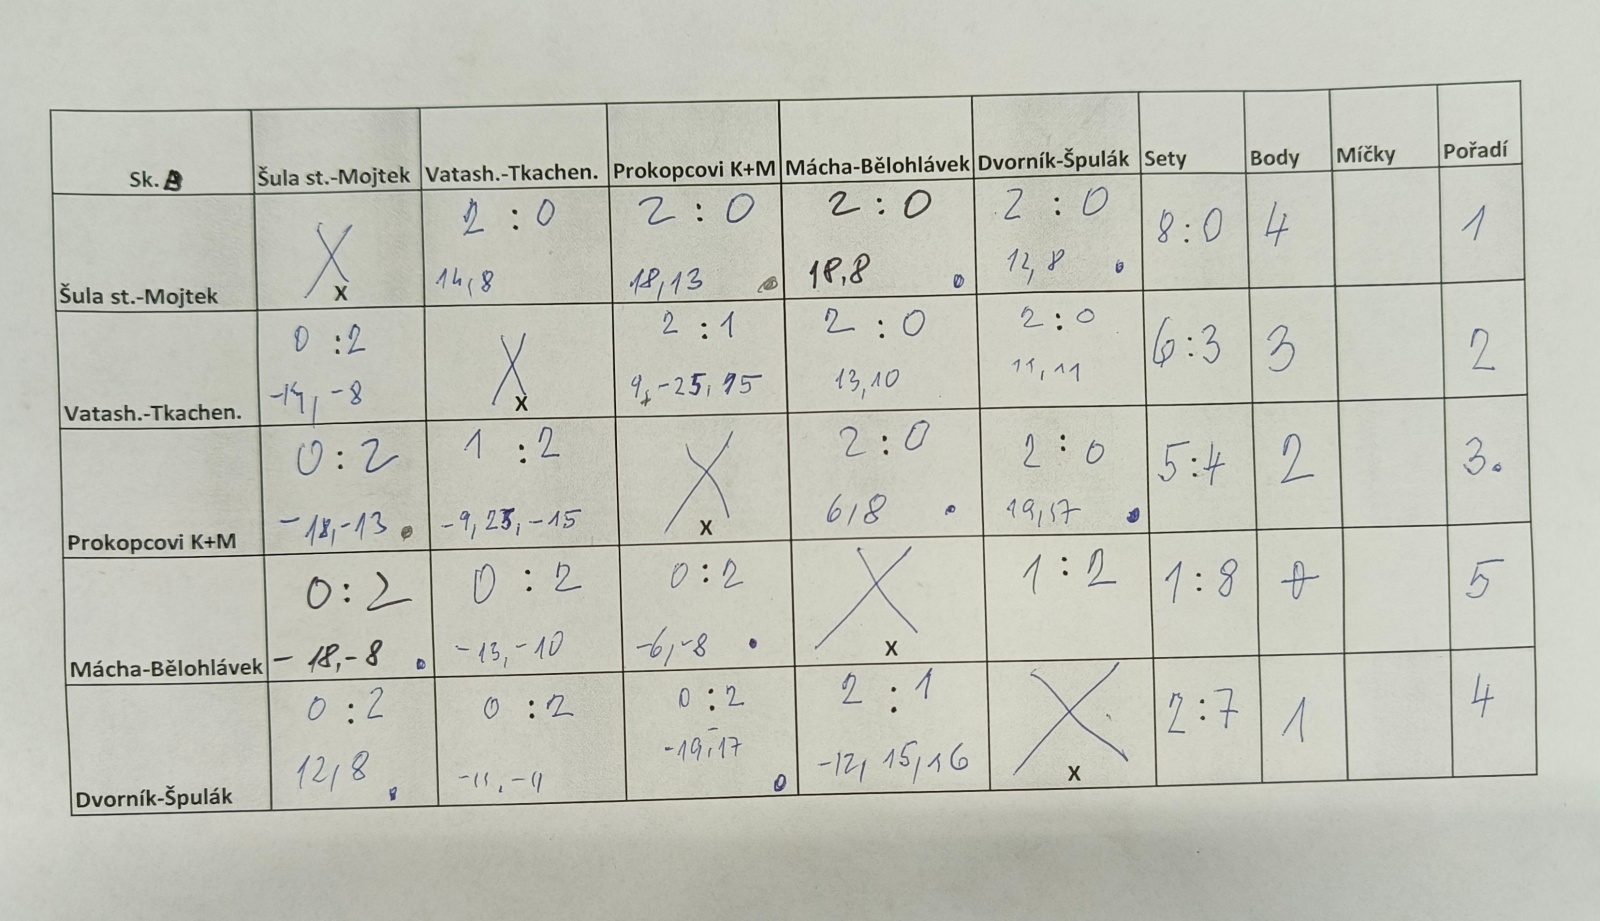 Sk. B Šula st.-Mojtek Vatash.-Tkachen. Prokopcovi K+M Mácha-Bělohlávek Dvorník-Špulák Sety Body Míčky Pořadí
X 2 : 0 2 : 0 2 : 0 2 : 0 8:0 4 1
14,8 18,13 18,8 12,8
Šula st.-Mojtek x
0 :2 X 2 :1 2 :0 2:0 6:3 3 2
-14, -8 9,-25,15 13,10 11,11
Vatash.-Tkachen. x
0:2 1 :2 X 2:0 2:0 5:4 2 3.
-18,-13 -9,25,-15 6,8 19,17
Prokopcovi K+M x
0:2 0 :2 0:2 X 1:2 1:8 0 5
-18,-8 -13,-10 -6,-8
Mácha-Bělohlávek x
0 :2 0 :2 0:2 2 :1 X 2:7 1 4
12,8 -11,-11 -19,-17 -12, 15,16
Dvorník-Špulák x